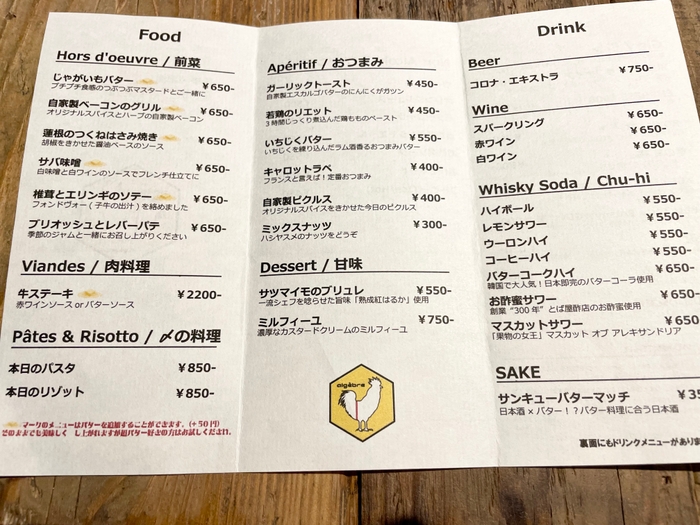 Food
Hors d'oeuvre / 前菜
じゃがいもバター ¥650-
プチプチ食感のつぶつぶマスタードとご一緒に
自家製ベーコンのグリル ¥650-
オリジナルスパイスとハーブの自家製ベーコン
蓮根のつくねはさみ焼き ¥650-
胡椒をきかせた醤油ベースのソース
サバ味噌 ¥650-
白味噌と白ワインのソースでフレンチ仕立てに
椎茸とエリンギのソテー ¥650-
フォンドヴォー(子牛の出汁)を絡めました
ブリオッシュとレバーパテ ¥650-
季節のジャムと一緒にお召し上がりください
Viandes / 肉料理
牛ステーキ ¥2200-
赤ワインソース orバターソース
Pâtes & Risotto / 〆の料理
本日のパスタ ¥850-
本日のリゾット ¥850-
マークのメニューはバターを追加することができます。(+50円)
そのままでも美味しく し上がれますが追バター好きの方はお試しください。
Apéritif / おつまみ
ガーリックトースト ¥450-
自家製エスカルゴバターのにんにくがガツン
若鶏のリエット ¥450-
3時間じっくり煮込んだ鶏もものペースト
いちじくバター ¥550-
いちじくを練り込んだラム酒香るおつまみバター
キャロットラペ ¥400-
フランスと言えば！定番おつまみ
自家製ピクルス ¥400-
オリジナルスパイスをきかせた今日のピクルス
ミックスナッツ ¥300-
ハシヤスメのナッツをどうぞ
Dessert / 甘味
サツマイモのブリュレ ¥550-
一流シェフを唸らせた旨味「熟成紅はるか」使用
ミルフィーユ ¥750-
濃厚なカスタードクリームのミルフィーユ
algébra
Drink
Beer
コロナ・エキストラ ¥750-
Wine
スパークリング ¥650-
赤ワイン ¥650-
白ワイン ¥650-
Whisky Soda / Chu-hi
ハイボール ¥550-
レモンサワー ¥550-
ウーロンハイ ¥550-
コーヒーハイ ¥550-
バターコークハイ ¥650-
韓国で大人気！日本即完のバターコーラ使用
お酢蜜サワー ¥650-
創業 "300年" とば屋酢店のお酢蜜使用
マスカットサワー ¥650
「果物の女王」マスカット オブ アレキサンドリア
SAKE
サンキューバターマッチ ¥35
日本酒 × バター！？バター料理に合う日本酒
裏面にもドリンクメニューがあり